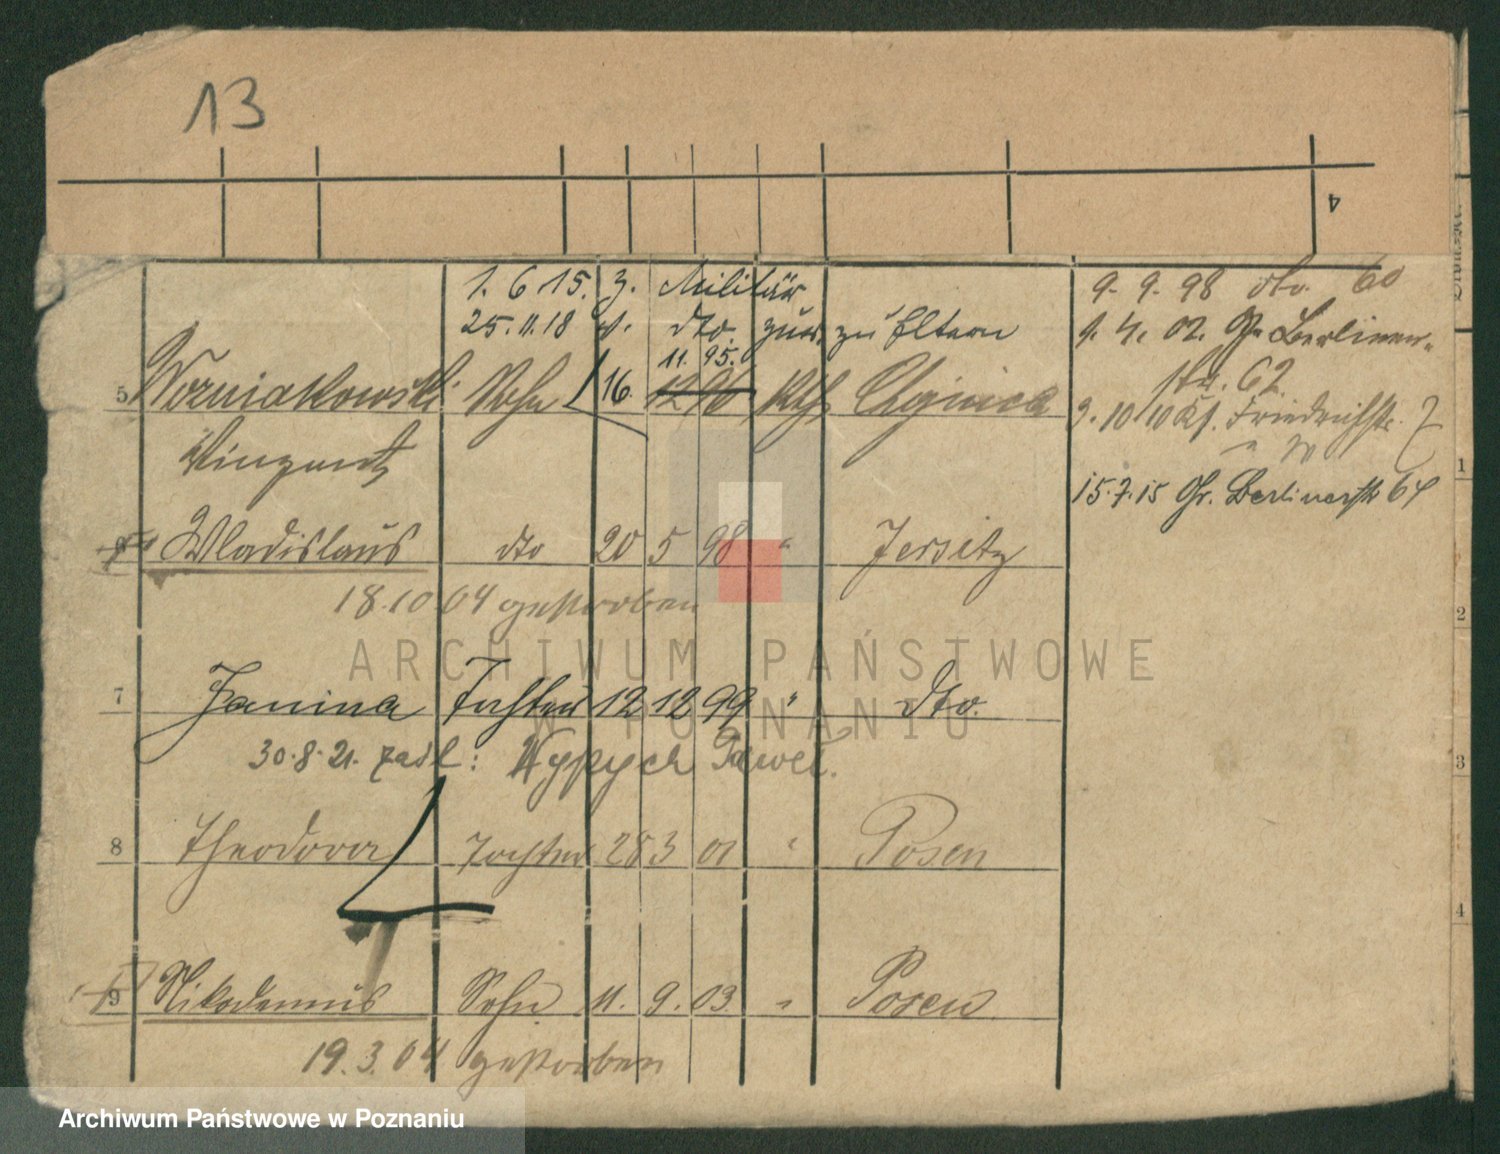 13
4
1. 6 15. z. Militär
25. 11. 18 v. dto. zur. zu Eltern
11. 95.
5 Wozniakowski Sohn 16. 12 96 Kth.
Vinzentz
Wladislaus dto 20 5 98 " Jersitz
18. 10 04 gestorben
7 Janina Tochter 12 12 99 " dto.
30. 8. 21. zaśl: Wypych Paweł.
8 Theodora Tochter 28 3 01 " Posen
9 Nikodemus Sohn 11. 9. 03. " Posen
19. 3. 04 gestorben
9. 9. 98 dto. 60
1. 4. 02. Gr Berliner-
str. 62
3. 10 10 Kf. Friedrichstr. 7
15. 7. 15 Gr. Berlinerstr 64
1
2
3
4
ARCHIWUM PAŃSTWOWE
W POZNANIU
Archiwum Państwowe w Poznaniu